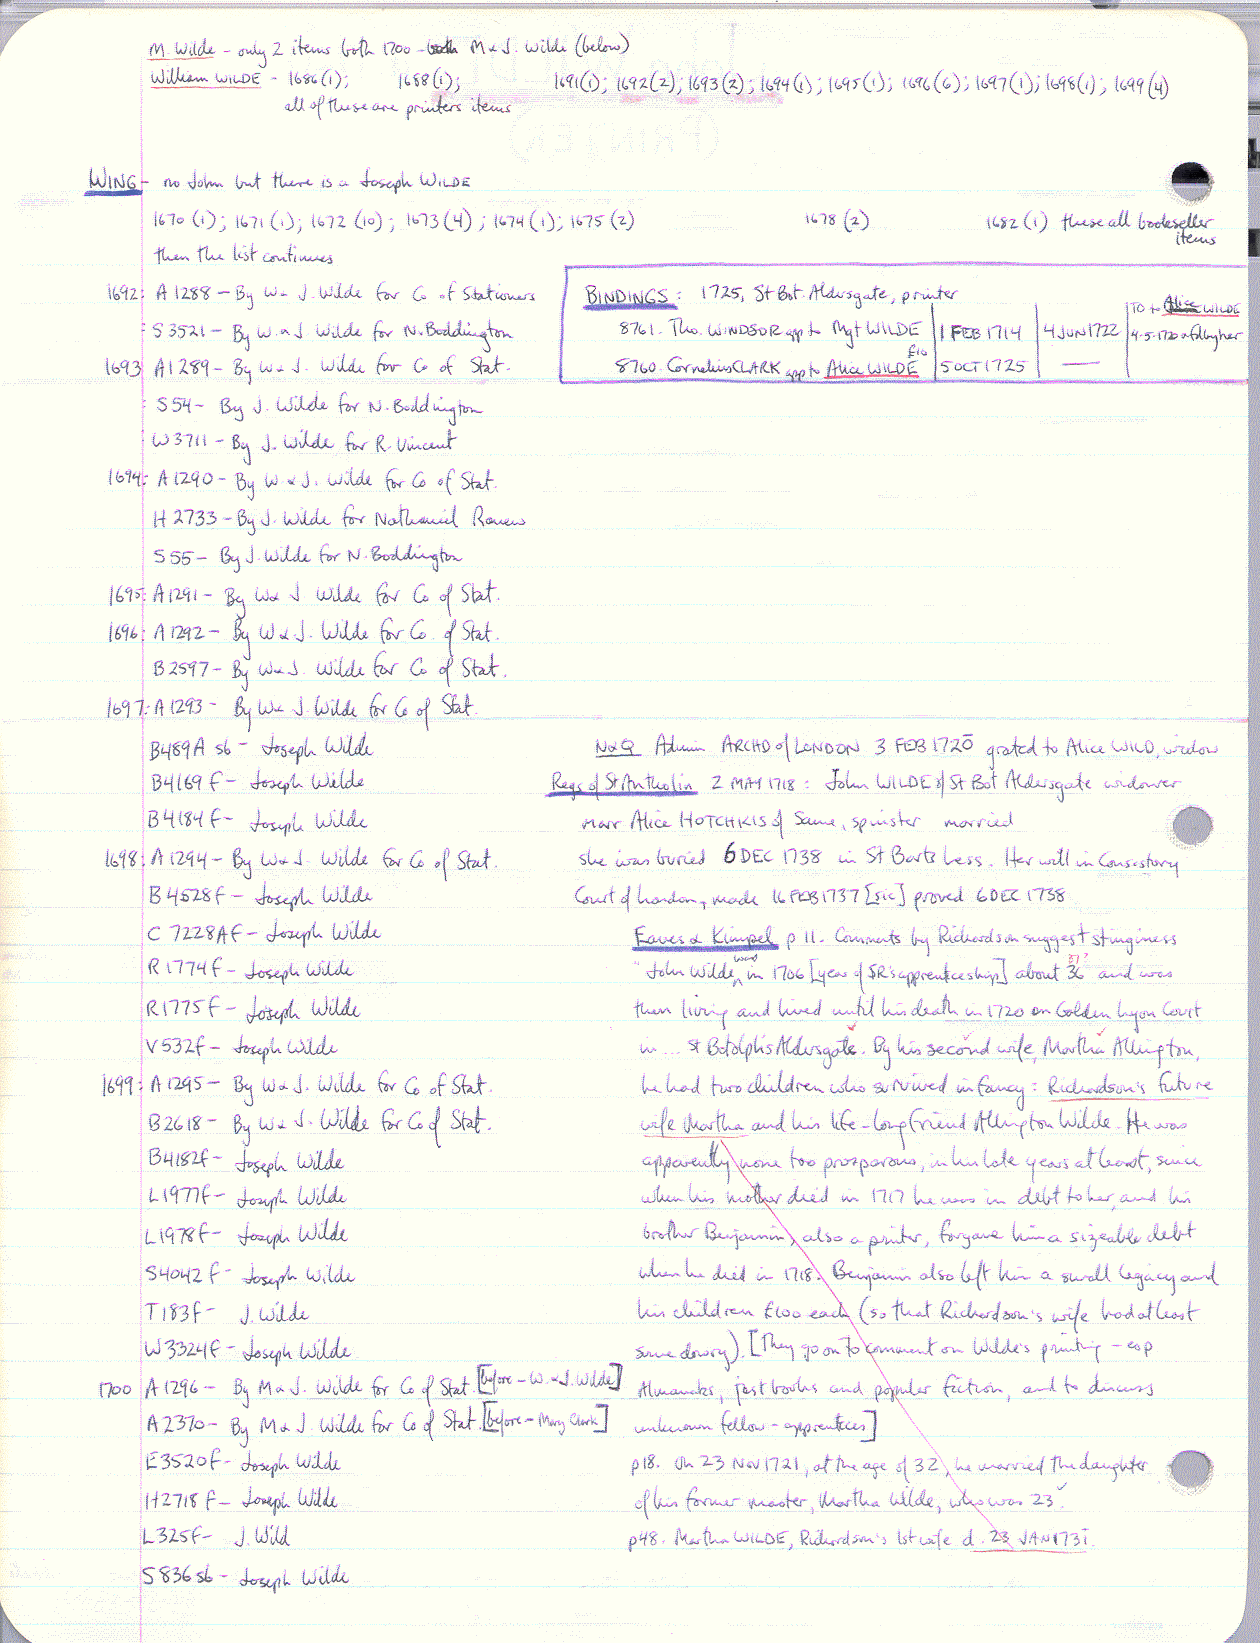 M. Wilde - only 2 items both 1700 - both M & J. Wilde (below)
William WILDE - 1686(1); 1688(1); 1691(1); 1692(2); 1693(2); 1694(1); 1695(1); 1696(6); 1697(1); 1698(1); 1699(4)
all of these are printers items
(PRINTER)
WING - no John but there is a Joseph WILDE
1670(1); 1671(1); 1672(10); 1673(4); 1674(1); 1675(2) 1678(2) 1682(1) these all bookseller items
then the list continues
1692: A1288 - By W & J. Wilde for Co of Stationers
S3521 - By W. & J. Wilde for N. Boddington
1693 A1289 - By W & J. Wilde for Co of Stat.
BINDINGS: 1725, St Bot. Aldersgate, printer
8761. Tho. WINDSOR app to Mgt WILDE 1 FEB 1714 4 JUN 1722 TO to Alice WILDE 4-5-1720
8760. Cornelius CLARK app to Alice WILDE £10 5 OCT 1725 —
S54 - By J. Wilde for N. Boddington
W3711 - By J. Wilde for R. Vincent
1694: A1290 - By W & J. Wilde for Co of Stat.
H2733 - By J. Wilde for Nathaniel Ranew
S55 - By J. Wilde for N. Boddington
1695: A1291 - By W & J Wilde for Co of Stat.
1696: A1292 - By W & J. Wilde for Co. of Stat.
B2597 - By W & J. Wilde for Co of Stat.
1697: A1293 - By W & J. Wilde for Co of Stat.
B489A sb - Joseph Wilde
B4169 F - Joseph Wilde
B4184 F - Joseph Wilde
1698: A1294 - By W & J. Wilde for Co of Stat.
B4528f - Joseph Wilde
C 7228A F - Joseph Wilde
R1774F - Joseph Wilde
R1775F - Joseph Wilde
V532f - Joseph Wilde
1699: A1295 - By W & J. Wilde for Co of Stat.
B2618 - By W & J. Wilde for Co of Stat.
B4182f - Joseph Wilde
L1977f - Joseph Wilde
L1978f - Joseph Wilde
S4042 F - Joseph Wilde
T183f - J. Wilde
W3324f - Joseph Wilde
1700 A1296 - By M & J. Wilde for Co of Stat. [before - W. & J. Wilde]
A2370 - By M & J. Wilde for Co of Stat. [before - Mary Clark]
E3520F - Joseph Wilde
H2718 F - Joseph Wilde
L325f - J. Wild
S836 sb - Joseph Wilde
N&Q Admin ARCHD of LONDON 3 FEB 1720 grated to Alice WILD, widow
Regs of St Antholin 2 MAY 1718: John WILDE of St Bot Aldersgate widower
marr Alice HOTCHKIS of Same, spinster married
she was buried 6 DEC 1738 in St Barts Less. Her will in Consistory
Court of London, made 16 FEB 1737 [sic] proved 6 DEC 1738
Eaves & Kimpel p 11. Comments by Richardson suggest stinginess
"John Wilde, in 1706 [year of SR's apprenticeship] about 36 and was
37?
then living and lived until his death in 1720 on Golden Lyon Court
in ... St Botolph's Aldersgate. By his second wife, Martha Allington,
he had two children who survived infancy: Richardson's future
wife Martha and his life-long friend Allington Wilde. He was
apparently none too prosperous, in his late years at least, since
when his mother died in 1717 he was in debt to her, and his
brother Benjamin, also a printer, forgave him a sizeable debt
when he died in 1718. Benjamin also left him a small legacy and
his children £100 each (so that Richardson's wife had at least
some dowry). [They go on to comment on Wilde's printing - esp
Almanacks, jest books and popular fiction, and to discuss
unknown fellow-apprentices]
p18. On 23 Nov 1721, at the age of 32, he married the daughter
of his former master, Martha Wilde, who was 23.
p48. Martha WILDE, Richardson's 1st wife d. 23 JAN 1731.